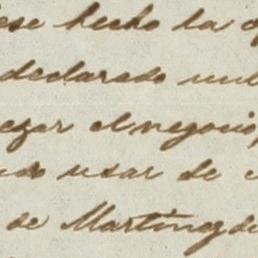 ese hecho la
declarado nul
ezar el negocio,
ndo usar de
de Martinez de